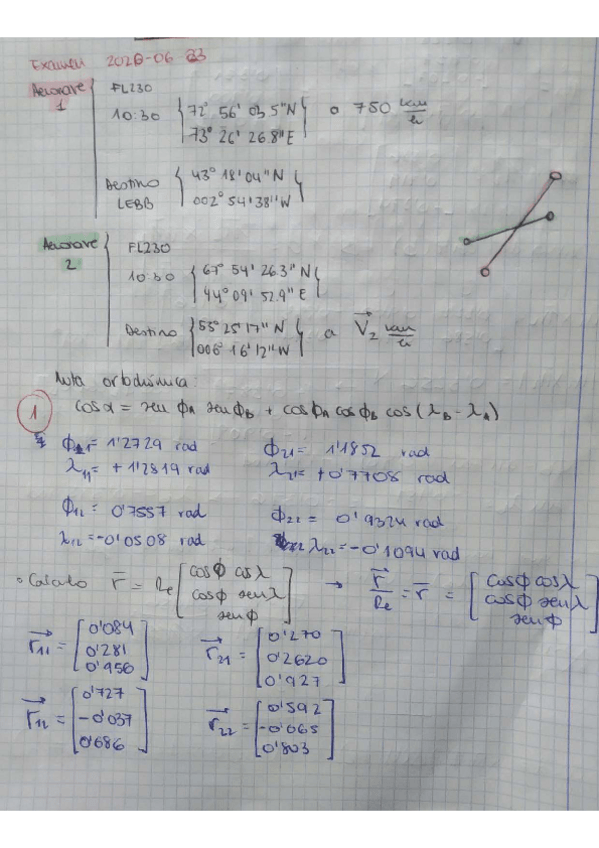 Examen 2020-06 23
Aeronave 1 { FL230
10:30 { 72° 56' 03 5"N
73° 26' 26.8"E } a 750 km/h
Destino LEBB { 43° 18' 04" N
002° 54' 38" W }
Aeronave 2 { FL230
10:30 { 67° 54' 26.3" N
44° 09' 52.9" E }
Destino { 55° 25' 17" N
006° 16' 12" W } a V₂ km/h
Ruta ortodrómica:
1 cos α = sen ϕA sen ϕB + cos ϕA cos ϕB cos (λB - λA)
ϕ11 = 1'2729 rad ϕ21 = 1'1852 rad
λ11 = + 1'2819 rad λ21 = +0'7708 rad
ϕ12 = 0'7557 rad ϕ22 = 0'9324 rad
λ12 = -0'0508 rad λ22 = -0'1094 rad
• Calculo r = Re [cosϕ cosλ
cosϕ senλ
senϕ] → r/Re = r = [cosϕ cosλ
cosϕ senλ
senϕ]
r11 = [0'084
0'281
0'956] r21 = [0'270
0'2620
0'927]
r12 = [0'727
-0'037
0'686] r22 = [0'592
-0'065
0'803]